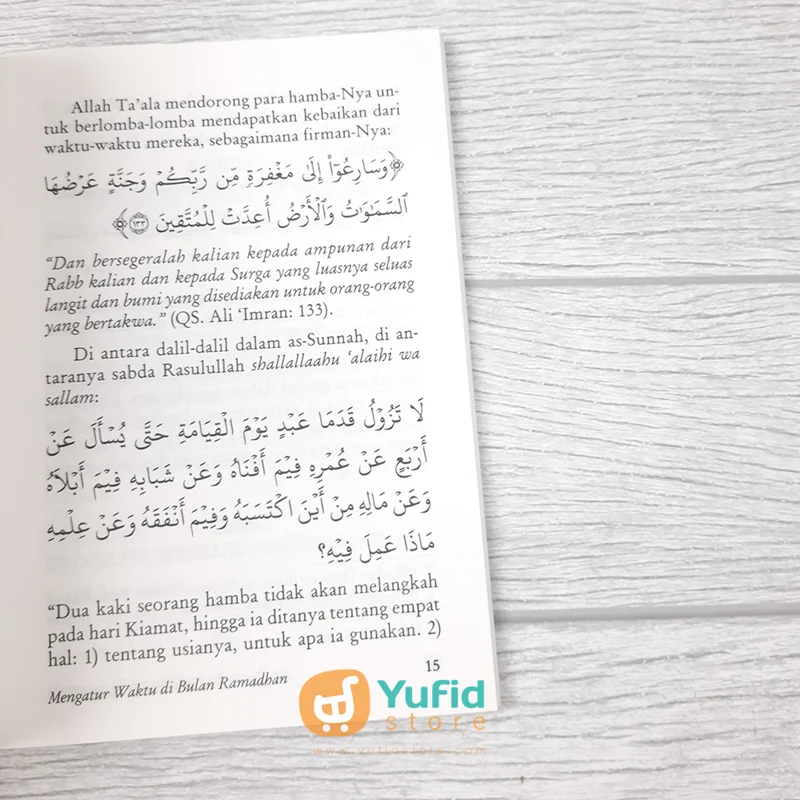 Allah Ta’ala mendorong para hamba-Nya un-
tuk berlomba-lomba mendapatkan kebaikan dari
waktu-waktu mereka, sebagaimana firman-Nya:
﴿وَسَارِعُوٓا۟ إِلَىٰ مَغْفِرَةٍ مِّن رَّبِّكُمْ وَجَنَّةٍ عَرْضُهَا
ٱلسَّمَٰوَٰتُ وَٱلْأَرْضُ أُعِدَّتْ لِلْمُتَّقِينَ ١٣٣﴾
“Dan bersegeralah kalian kepada ampunan dari
Rabb kalian dan kepada Surga yang luasnya seluas
langit dan bumi yang disediakan untuk orang-orang
yang bertakwa.” (QS. Ali ‘Imran: 133).
Di antara dalil-dalil dalam as-Sunnah, di an-
taranya sabda Rasulullah shallallaahu ‘alaihi wa
sallam:
لَا تَزُوْلُ قَدَمَا عَبْدٍ يَوْمَ الْقِيَامَةِ حَتَّى يُسْأَلَ عَنْ
أَرْبَعٍ عَنْ عُمْرِهِ فِيْمَ أَفْنَاهُ وَعَنْ شَبَابِهِ فِيْمَ أَبْلَاهُ
وَعَنْ مَالِهِ مِنْ أَيْنَ اكْتَسَبَهُ وَفِيْمَ أَنْفَقَهُ وَعَنْ عِلْمِهِ
مَاذَا عَمِلَ فِيْهِ؟
“Dua kaki seorang hamba tidak akan melangkah
pada hari Kiamat, hingga ia ditanya tentang empat
hal: 1) tentang usianya, untuk apa ia gunakan. 2)
15
Mengatur Waktu di Bulan Ramadhan
Yufid
store
www.yufidstore.com